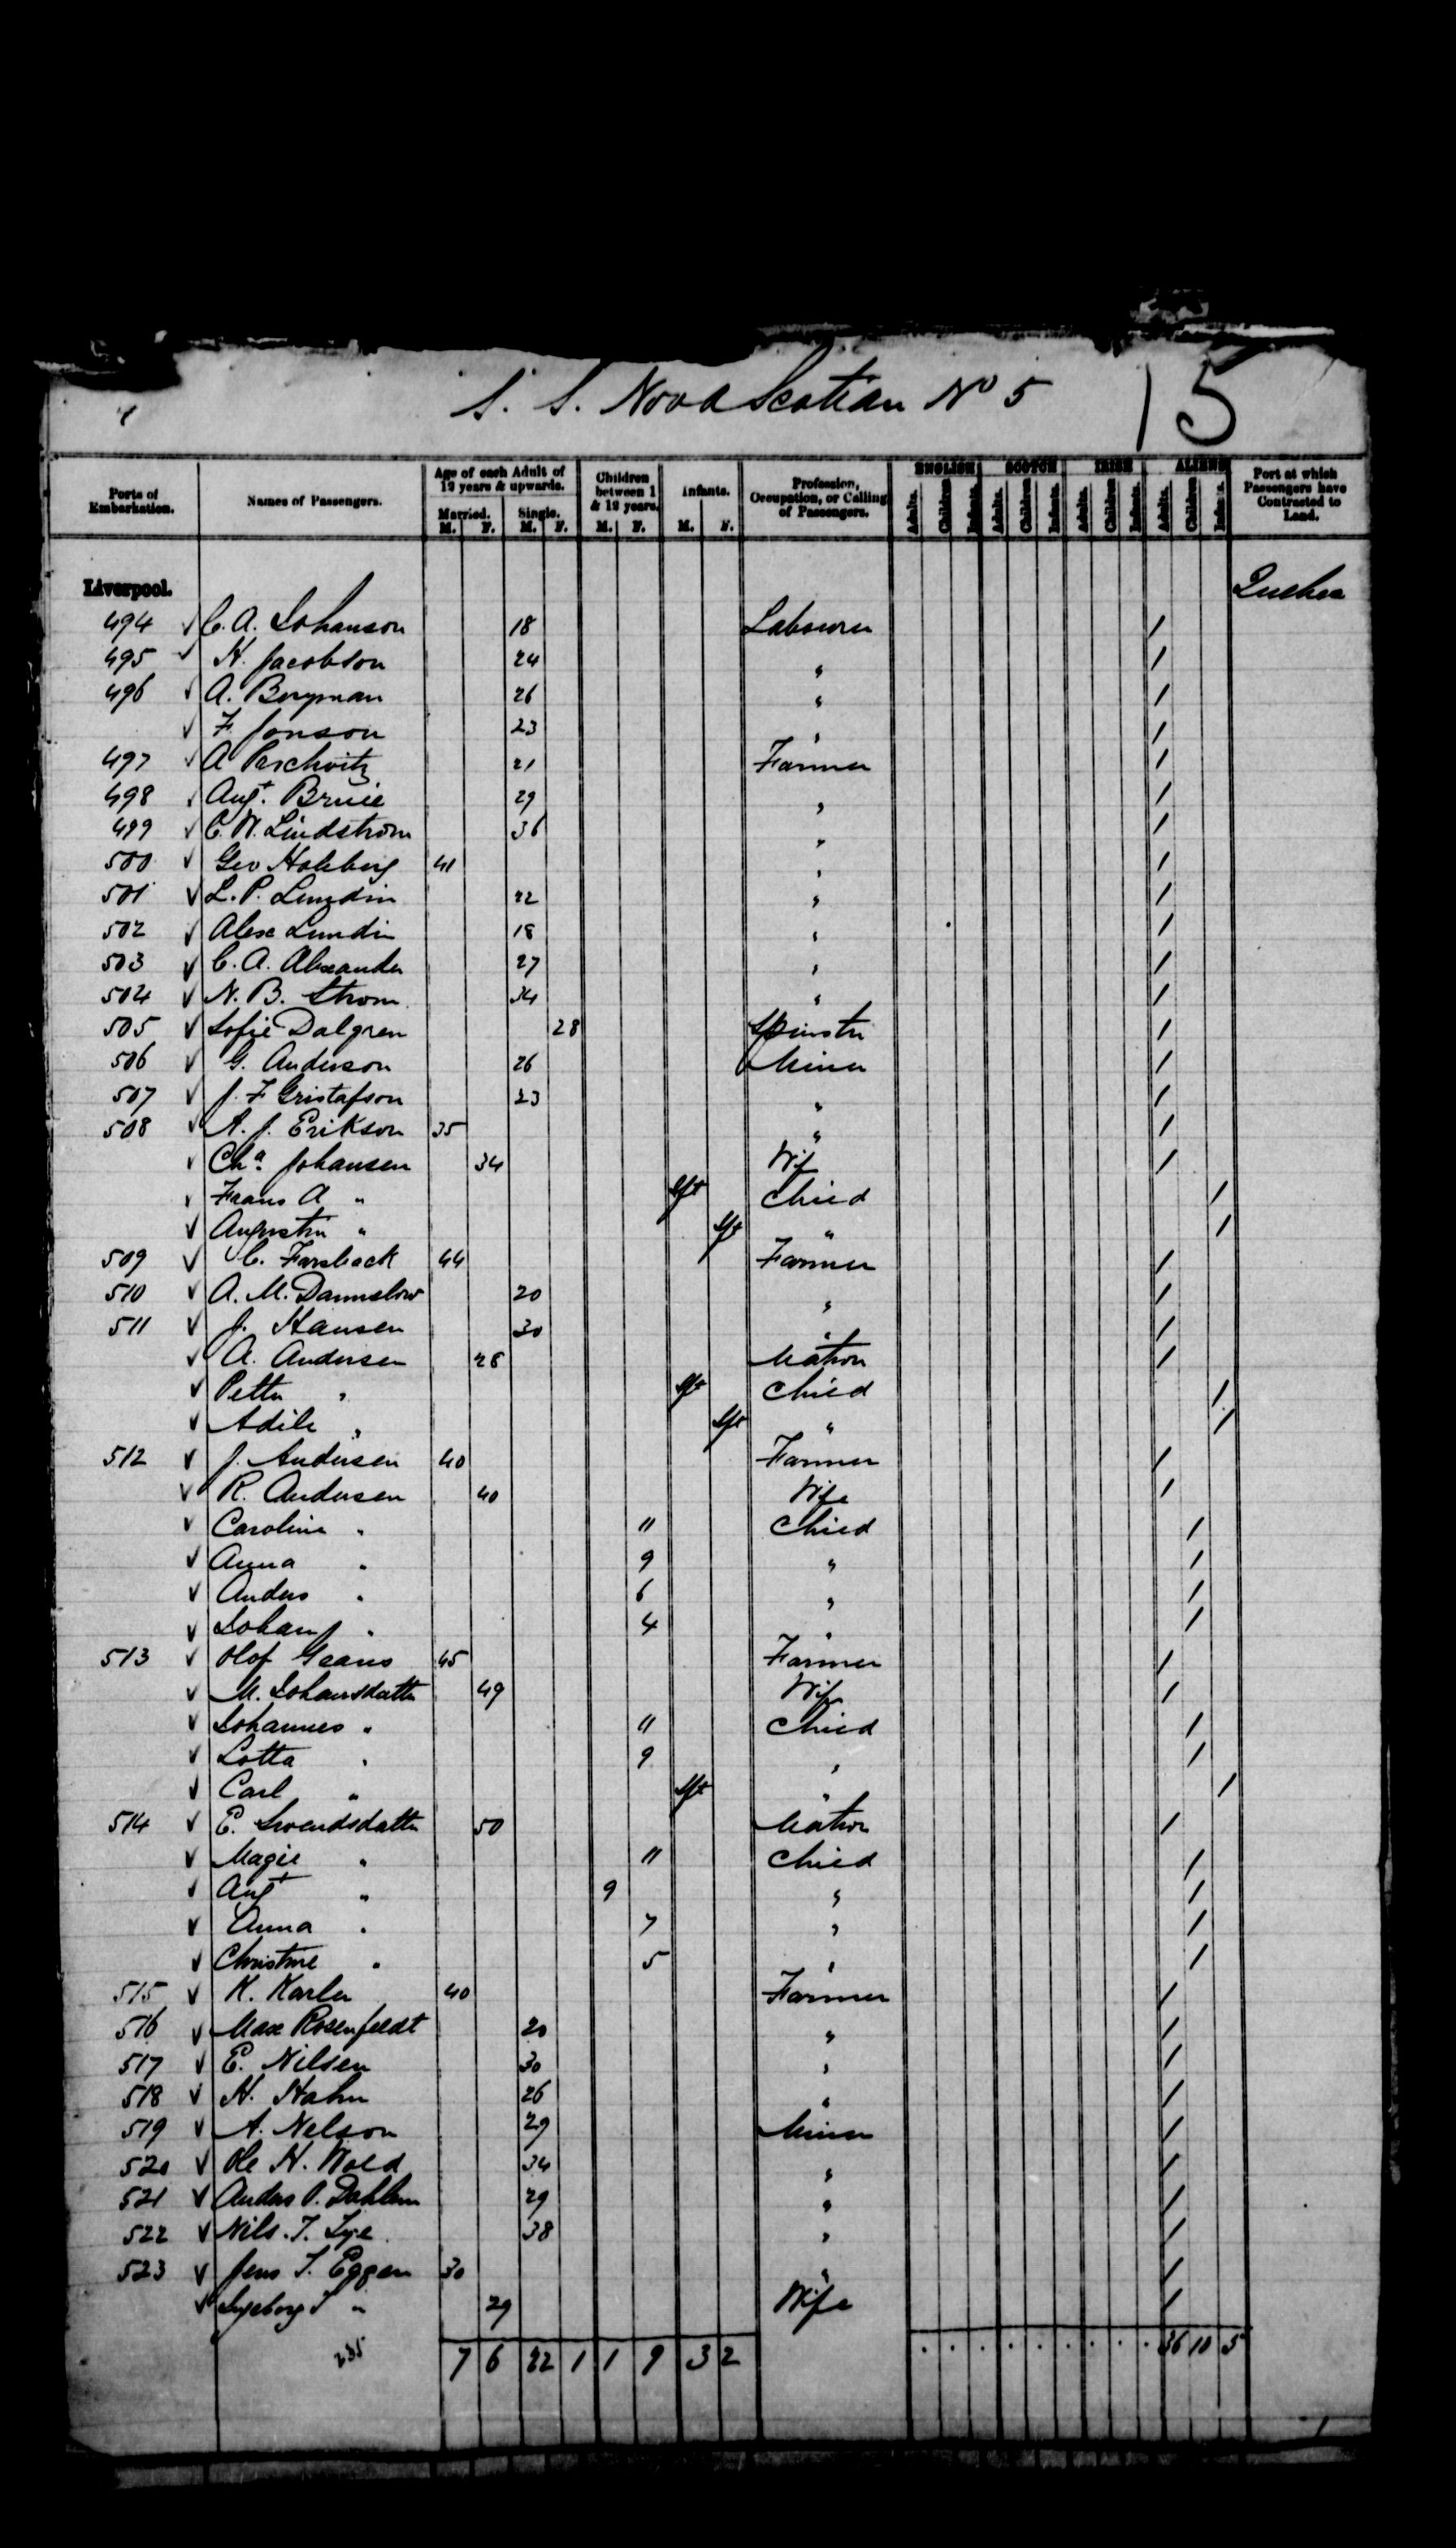 S. S. Nova Scotian No 5
15
Ports of Embarkation.
Names of Passengers.
Age of each Adult of 12 years & upwards.
Married. Single.
M. F. M. F.
Children between 1 & 12 years.
M. F.
Infants.
M. F.
Profession, Occupation, or Calling of Passengers.
ENGLISH SCOTCH IRISH ALIENS
Adults. Children Infants. Adults. Children Infants. Adults. Children Infants. Adults. Children Infants.
Port at which Passengers have Contracted to Land.
Liverpool. Quebec
494 C. A. Johanson 18 Labourer /
495 H. Jacobson 24 " /
496 A. Bergman 26 " /
F Jonson 23 " /
497 A Paschvitz 21 Farmer /
498 Augt. Bruce 29 " /
499 C. W. Lindstrom 36 " /
500 Geo Holeberg 41 " /
501 L. P. Lundin 22 " /
502 Alex Lundin 18 " /
503 C. A. Alexander 27 " /
504 N. B. Strom 34 " /
505 Sofie Dalgren 28 Spinstr /
506 G. Anderson 26 Miner /
507 J. F Gustafson 23 " /
508 A. J. Erikson 35 " /
Cha. Johansen 34 Wif /
Frans A " Inft Child /
Augustin " Inft " /
509 C. Farsback 44 Farmer /
510 A. M. Dannelow 20 " /
511 J. Hansen 30 " /
A. Andersen 28 Matron /
Petter " Inft Child /
Adile " Inft " /
512 J. Andersen 40 Farmer /
R. Andersen 40 Wife /
Caroline " 11 Child /
Anna " 9 " /
Anders " 6 " /
Johan J " 4 " /
513 Olof Grans 45 Farmer /
M. Johansdatter 49 Wife /
Johannes " 11 Child /
Lotta " 9 " /
Carl " Inft " /
514 E. Svendsdatter 50 Matron /
Magie " 11 Child /
Augt " 9 " /
Anna " 7 " /
Christine " 5 " /
515 K. Karler 40 Farmer /
516 Max Rosenfeldt 20 " /
517 E. Nilsen 30 " /
518 H. Hahn 26 " /
519 A. Nelson 29 Miner /
520 Ole H. Wold 34 " /
521 Anders P. Dahlem 29 " /
522 Nils. T. Lye 38 " /
523 Jens T. Eggen 30 " /
Ingeborg T " 29 Wife /
7 6 22 1 1 9 3 2 . . . . . . . . . 36 10 5